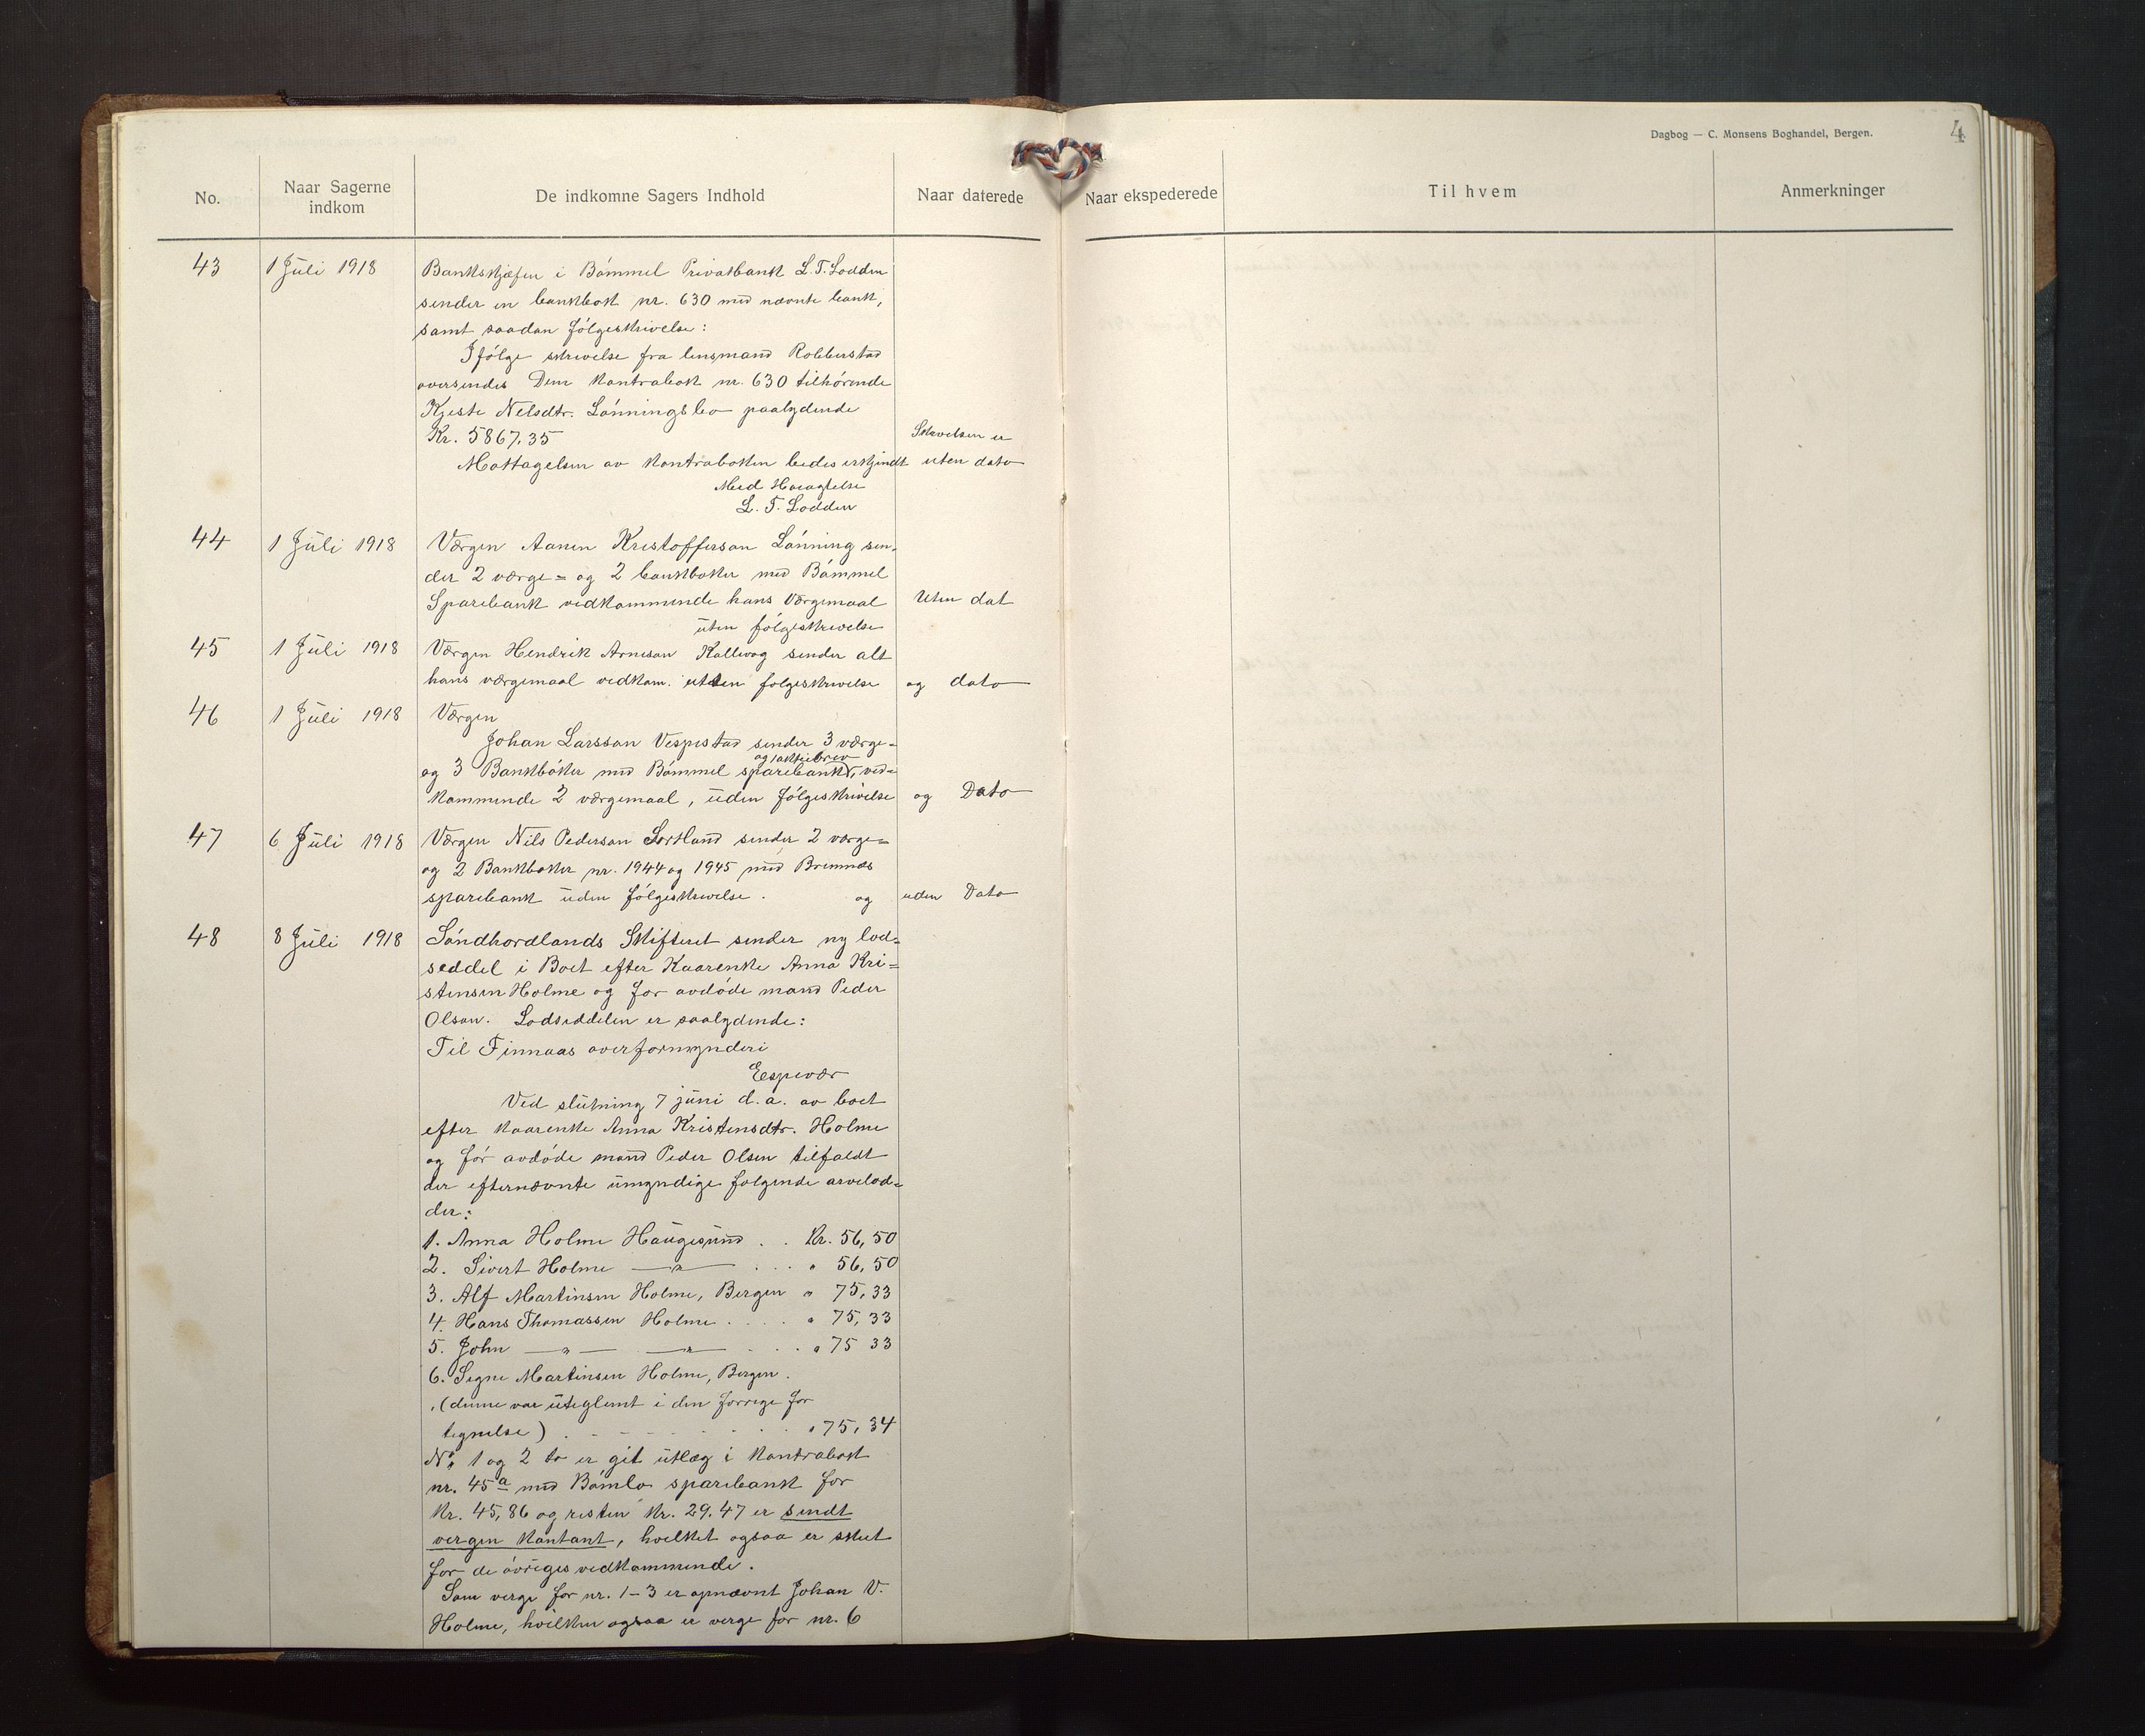 Dagbog — C. Monsens Boghandel, Bergen.
4
No.
Naar Sagerne
indkom
De indkomne Sagers Indhold
Naar daterede
Naar ekspederede
Til hvem
Anmerkninger
43 1 Juli 1918 Bankskjefen i Bömmel Privatbank L. T. Lodden
sender en bankbok nr. 630 med nævnte bank,
samt saadan fölgeskrivelse:
Ifölge skrivelse fra lensmand Robberstad
oversendes Dem kontrabok nr. 630 tilhörende
Kjesti Nelsdtr. Lönningsbo paalydende
Kr. 5867.35 Skrivelsen er
Mottagelsen av kontraboken bedes erkjendt uten dato
Med Høiagtelse
L. T. Lodden
44 1 Juli 1918 Værgen Aanen Kristofferson Lönning sen-
der 2 værge= og 2 bankboker med Bömmel
Sparebank vedkommende hans Værgemaal Uten dat
uten fölgeskrivelse
45 1 Juli 1918 Værgen Hendrik Arneson Kallevog sender alt
hans værgemaal vedkom. uten følgeskrivelse og dato
46 1 Juli 1918 Værgen
Johan Larsson Vespestad sender 3 værge=
og 1 aktiebrev
og 3 Bankböker med Bömmel sparebank, ved=
kommende 2 værgemaal, uden fölgeskrivelse og Dato
47 6 Juli 1918 Værgen Nils Pederson Sortland sender 2 værge=
og 2 Bankboker nr. 1944 og 1945 med Bremnes
sparebank uden fölgeskrivelse. og uden Dato
48 8 Juli 1918 Söndhordlands Skifteret sender ny lod=
seddel i Boet efter Kaarenke Anna Kri=
stensen Holme og for avdöde mand Peder
Olson. Lodseddelen er saalydende:
Til Finnaas overformynderi
Espevær
Ved slutning 7 juni d. a. av boet
efter kaarenke Anna Kristensdtr. Holme
og för avdöde mand Peder Olsen tilfaldt
der efternævnte umyndige følgende arvelod=
der:
1. Anna Holme Haugesund . . Kr. 56,50
2. Sivert Holme —"— . . . " 56,50
3. Alf Martinsen Holme, Bergen " 75,33
4. Hans Thomassen Holme . . . . " 75,33
5. John —"— —"— . . . " 75 33
6. Signe Martinsen Holme, Bergen.
(denne var uteglemt i den forrige for
tegnelse) . - - - - . . . . " 75,34
No. 1 og 2 to er git utlæg i kontrabok
nr. 45a med Bömlo sparebank for
kr. 45,86 og resten kr. 29.47 er sendt
vergen kontant, hvilket ogsaa er skeet
for de övriges vedkommende.
Som verge for nr. 1-3 er opnævnt Johan V.
Holme, hvilken ogsaa er verge for nr. 6